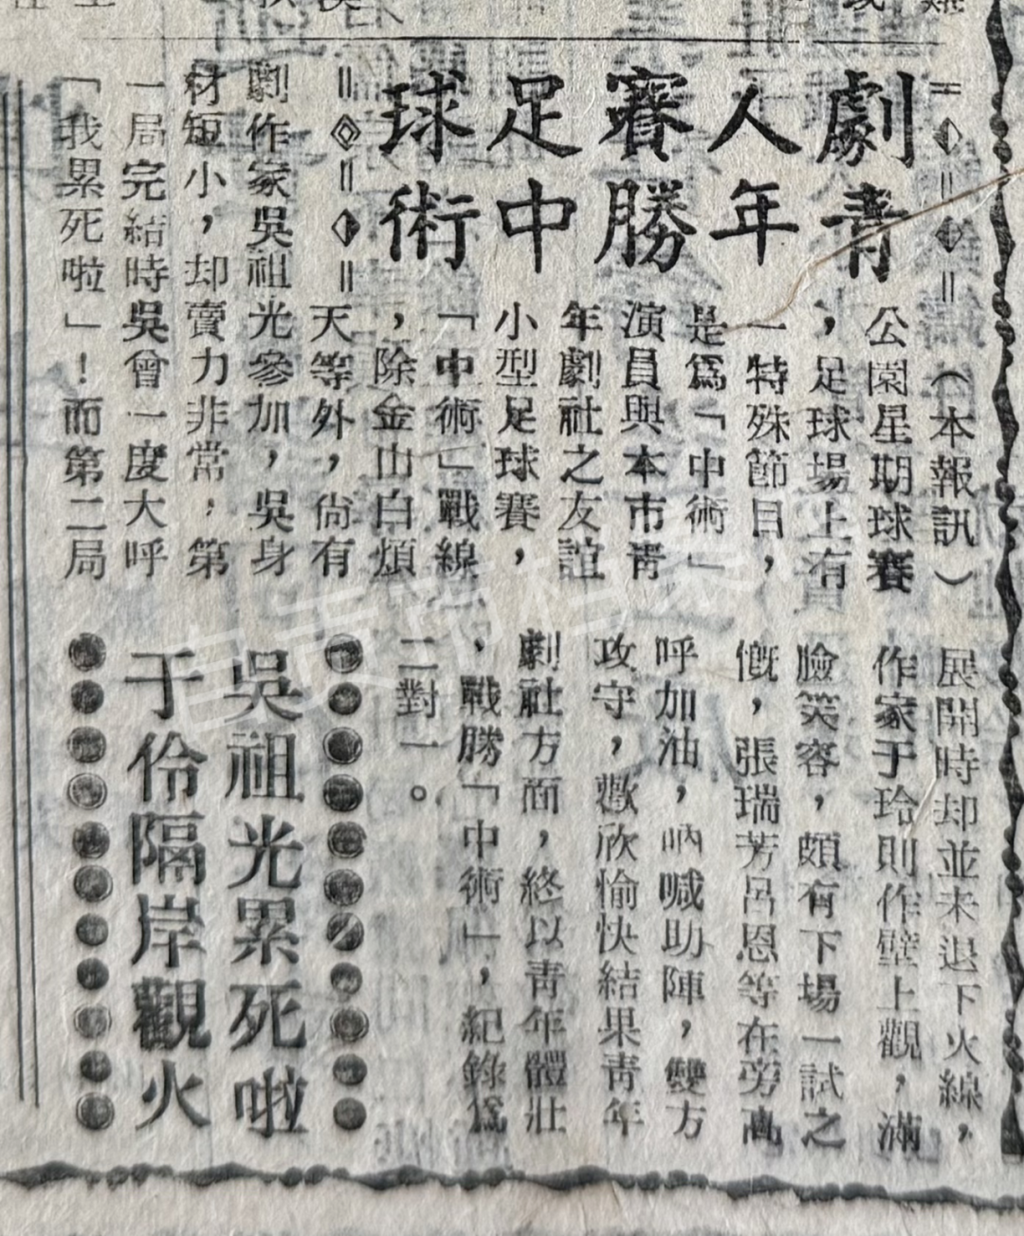 劇人賽足球
青年勝中術
（本報訊）
公園星期球賽
，足球場上有
一特殊節目，
是爲「中術」
演員與本市靑
年劇社之友誼
小型足球賽，
「中術」戰線
，除金山白煩
天等外，尙有
劇作家吳祖光參加，吳身
材短小，却賣力非常，第
一局完結時吳曾一度大呼
「我累死啦」！而第二局
展開時却並未退下火線，
作家于玲則作壁上觀，滿
臉笑容，頗有下場一試之
慨，張瑞芳呂恩等在旁高
呼加油，吶喊助陣，雙方
攻守，欣愉快結果靑年
劇社方面，終以靑年體壯
、戰勝「中術」，紀錄爲
二對一。
吳祖光累死啦
于伶隔岸觀火